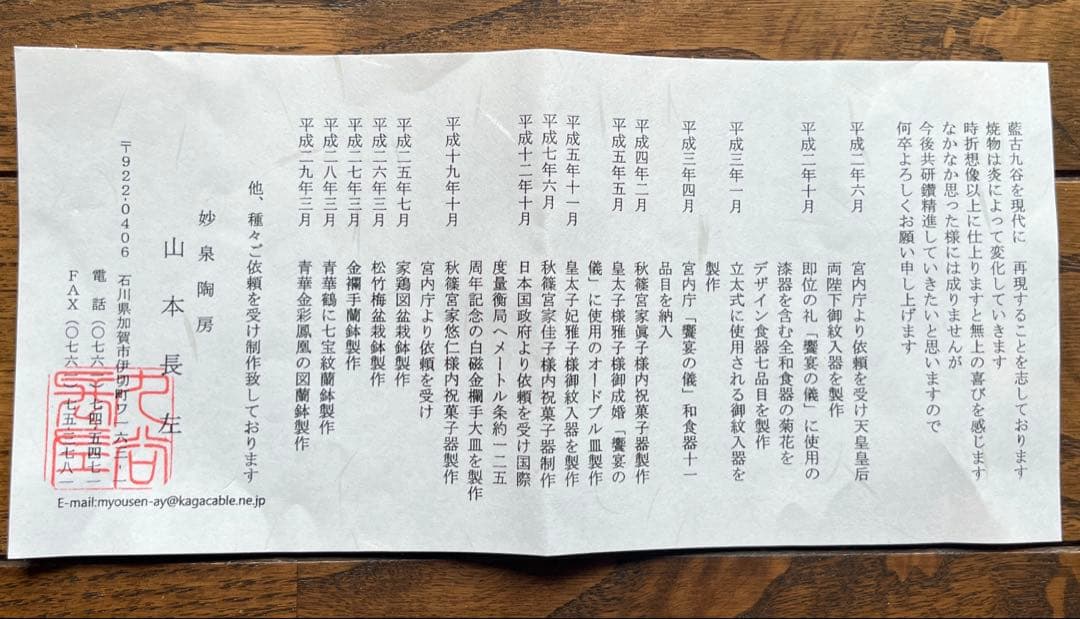 藍古九谷を現代に　再現することを志しております
焼物は炎によって変化していきます
時折想像以上に仕上りますと無上の喜びを感じます
なかなか思った様には成りませんが
今後共研鑽精進していきたいと思いますので
何卒よろしくお願い申し上げます
平成二年六月　宮内庁より依頼を受け天皇皇后
両陛下御紋入器を製作
平成二年十月　即位の礼「饗宴の儀」に使用の
漆器を含む全和食器の菊花を
デザイン食器七品目を製作
平成三年一月　立太式に使用される御紋入器を
製作
平成三年四月　宮内庁「饗宴の儀」和食器十一
品目を納入
平成四年二月　秋篠宮家眞子様内祝菓子器製作
平成五年五月　皇太子様雅子様御成婚「饗宴の
儀」に使用のオードブル皿製作
平成五年十一月　皇太子妃雅子様御紋入器を製作
平成七年六月　秋篠宮家佳子様内祝菓子器制作
平成十二年十月　日本国政府より依頼を受け国際
度量衡局へメートル条約一二五
周年記念の白磁金襴手大皿を製作
平成十九年十月　秋篠宮家悠仁様内祝菓子器製作
宮内庁より依頼を受け
平成二五年七月　家鶏図盆栽鉢製作
平成二六年三月　松竹梅盆栽鉢製作
平成二七年三月　金襴手蘭鉢製作
平成二八年三月　青華鶴に七宝紋蘭鉢製作
平成二九年三月　青華金彩鳳凰の図蘭鉢製作
他、種々ご依頼を受け制作致しております
妙泉陶房
山本長左
〒922-0406　石川県加賀市伊切町ワ一六三-一
電話（〇七六一）七四-五四七一
FAX（〇七六一）七五-一七八一
E-mail:myousen-ay@kagacable.ne.jp
九谷